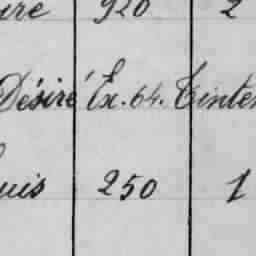 ure 920 2
Désiré Ex. 64. Tinter
uis 250 1